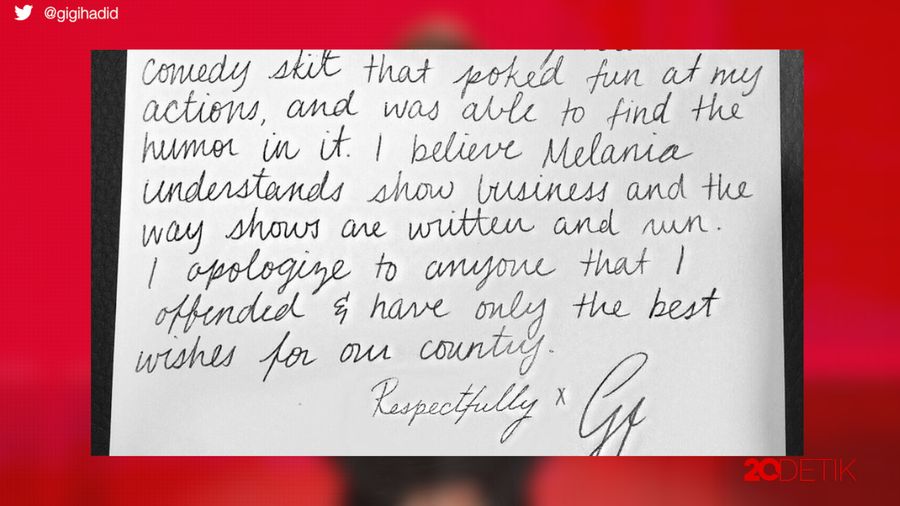 @gigihadid
comedy skit that poked fun at my
actions, and was able to find the
humor in it. I believe Melania
understands show business and the
way shows are written and run.
I apologize to anyone that I
offended & have only the best
wishes for our country.
Respectfully x
20DETIK